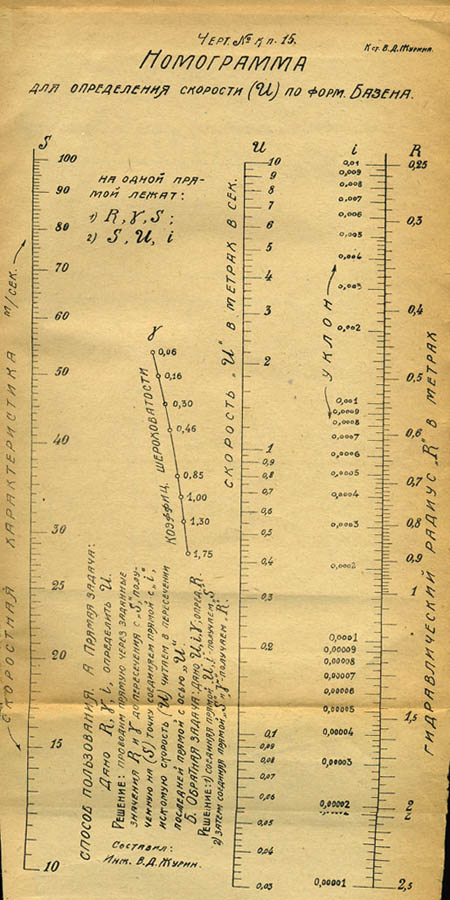 Черт. № к п. 15.
К ст. В.Д. Журин.
Номограмма
для определения скорости (U) по форм. Базена.
S
U
i
R
100
90
80
70
60
50
40
30
25
20
15
10
Скоростная характеристика м/сек.
на одной прямой лежат:
1) R, γ, S;
2) S, U, i
γ
0,06
0,16
0,30
0,46
0,85
1,00
1,30
1,75
Коэффиц. шероховатости
Скорость „U" в метрах в сек.
10
9
8
7
6
5
4
3
2
1
0,9
0,8
0,7
0,6
0,5
0,4
0,3
0,2
0,1
0,09
0,08
0,07
0,06
0,05
0,04
0,03
Уклон
0,01
0,009
0,008
0,007
0,006
0,005
0,004
0,003
0,002
0,001
0,0009
0,0008
0,0007
0,0006
0,0005
0,0004
0,0003
0,0002
0,0001
0,00009
0,00008
0,00007
0,00006
0,00005
0,00004
0,00003
0,00002
0,00001
0,25
0,3
0,4
0,5
0,6
0,7
0,8
0,9
1
1,5
2
2,5
Гидравлический радиус „R" в метрах
Способ пользования. А прямая задача:
Дано R, γ, i, определить U.
Решение: проводим прямую через заданные
значения R и γ до пересечения с „S", полу-
ченную на (S) точку соединяем прямой с „i",
искомую скорость (U) читаем в пересечении
последней прямой с осью „U".
Б. Обратная задача: дано U, i, γ, опред. R.
Решение: 1) соединяя прямой „U, i" получаем „S
2) затем соединяя прямой „S и γ" получаем „R.
Составил:
Инж. В.Д. Журин.